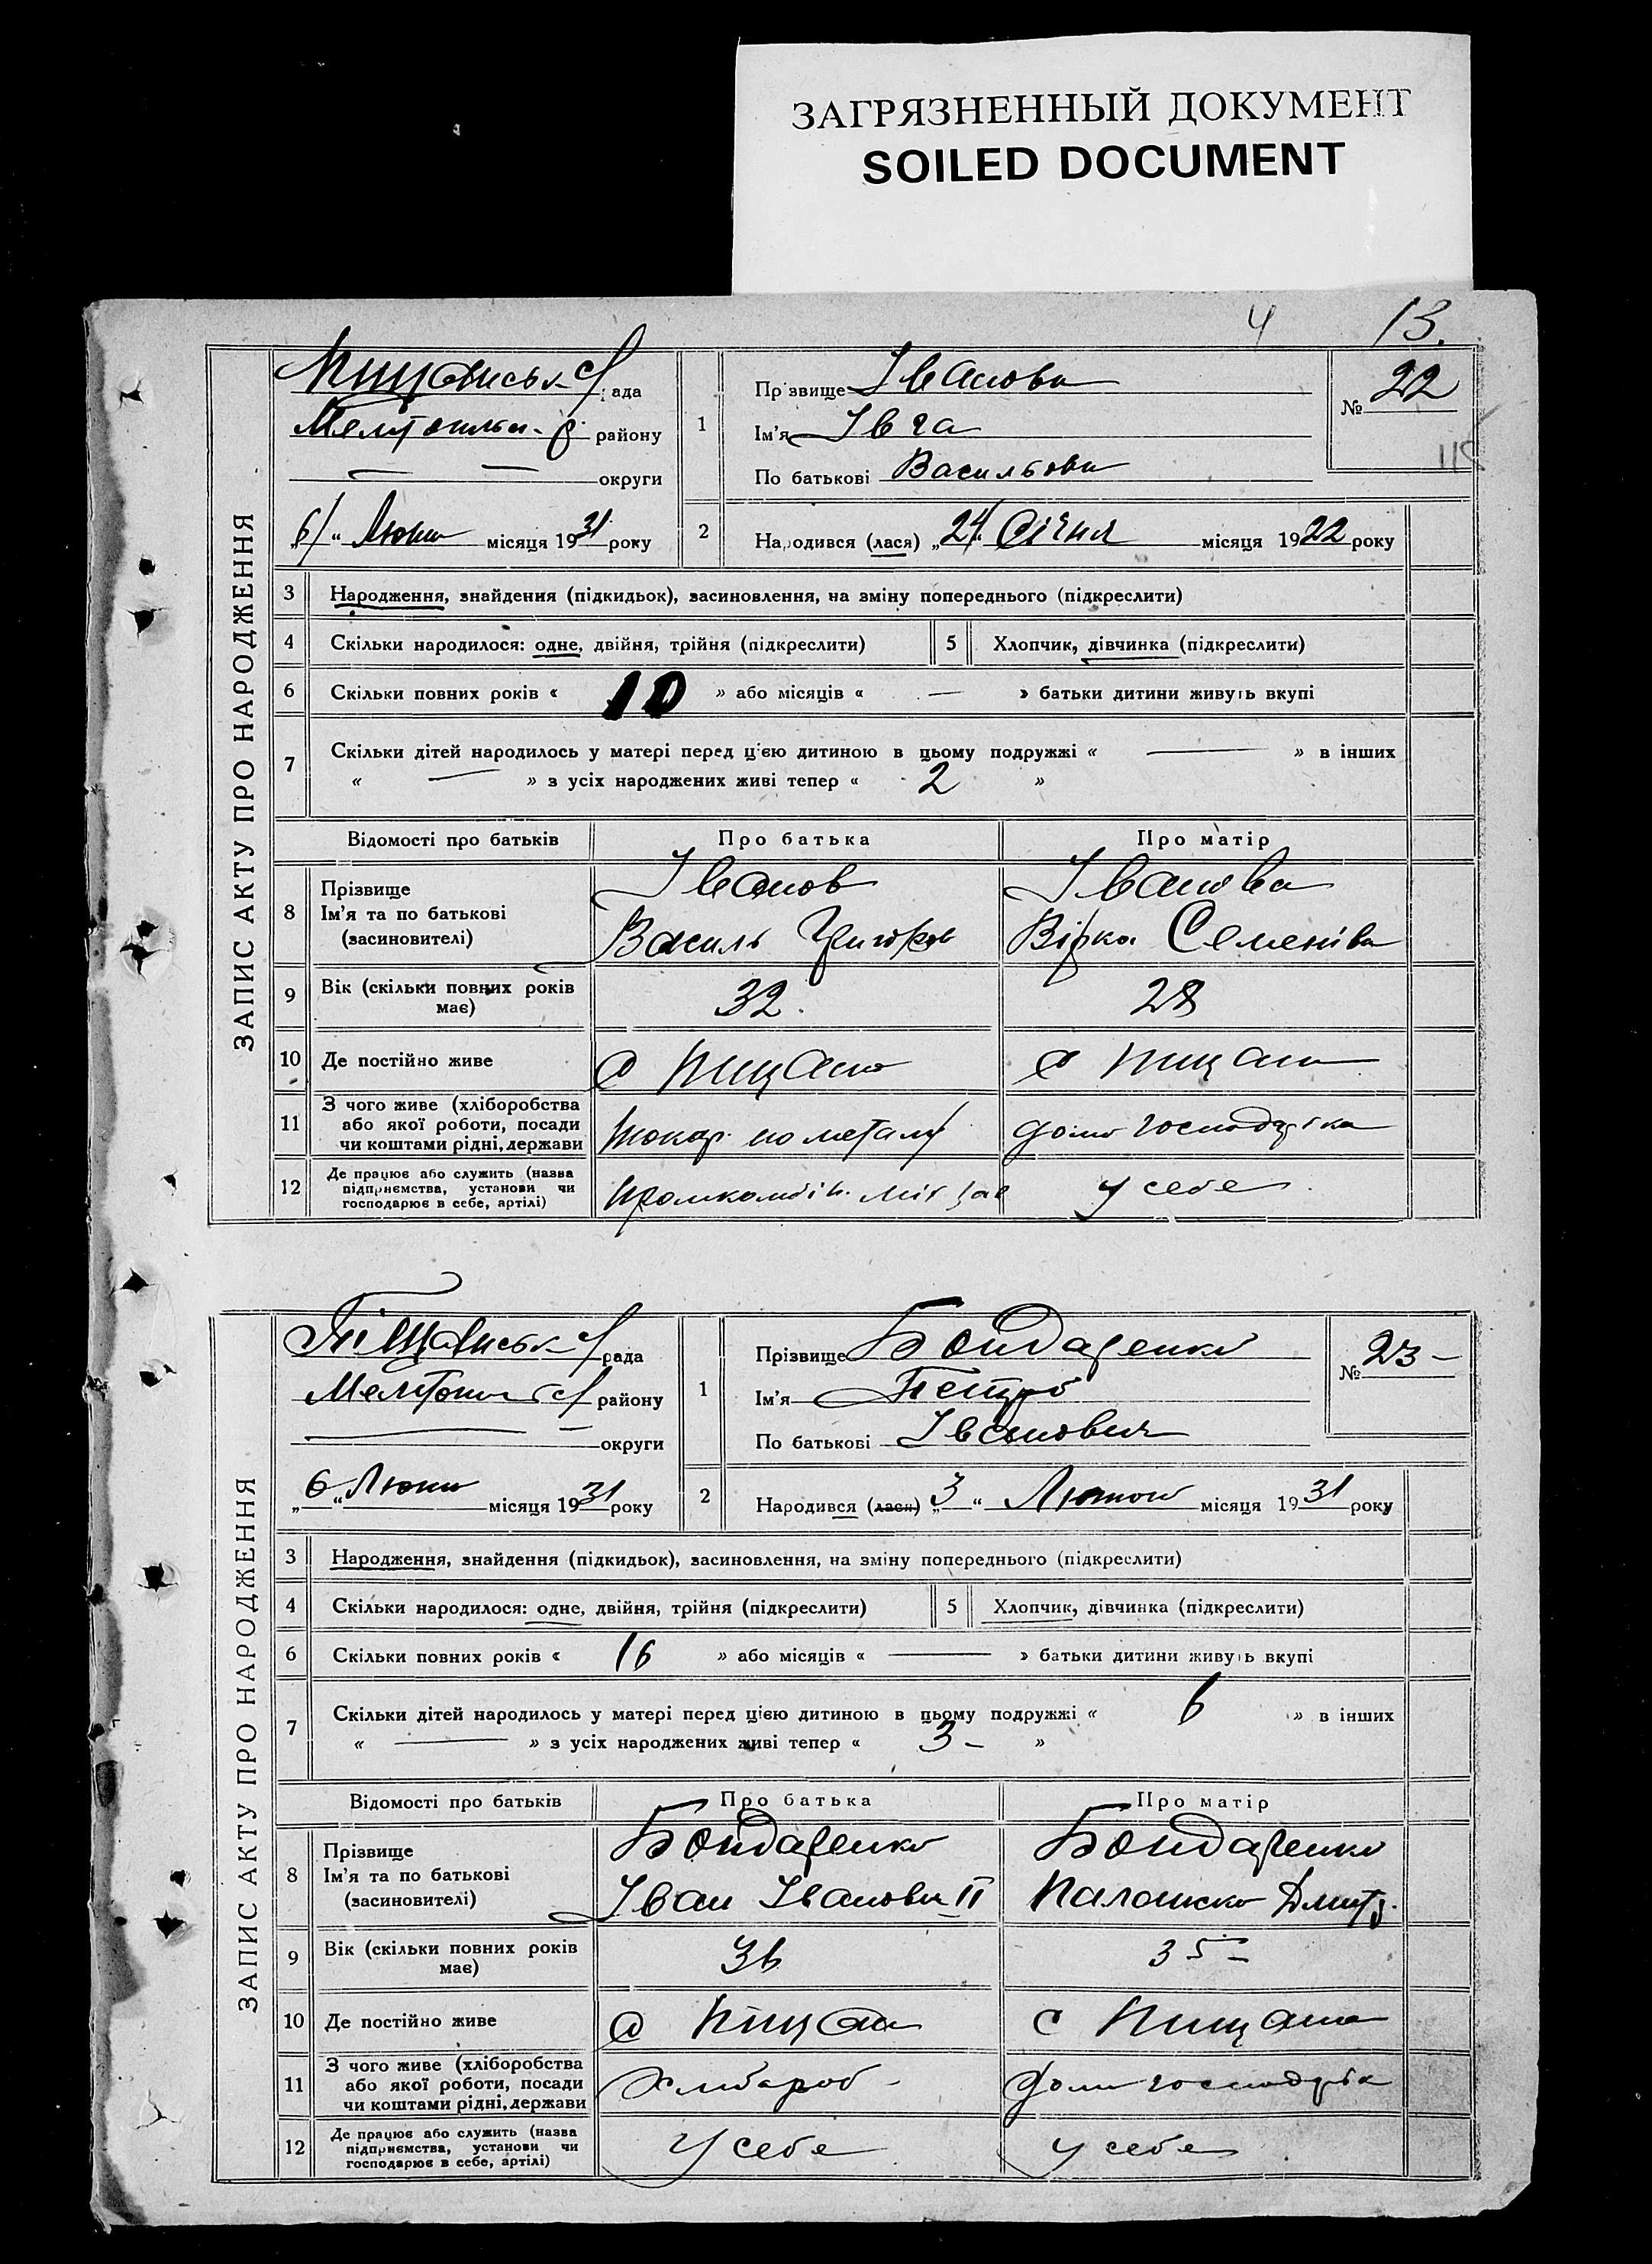 ЗАГРЯЗНЕННЫЙ ДОКУМЕНТ
SOILED DOCUMENT
4 13.
ЗАПИС АКТУ ПРО НАРОДЖЕННЯ
рада
району
округи
„6“ місяця 1931 року
1
Прізвище Іванова
Ім'я Івга
По батькові Васильовн
№ 22
2 Народився (лася) „24“ Січня місяця 1922 року
3 Народження, знайдення (підкидьок), засиновлення, на зміну попереднього (підкреслити)
4 Скільки народилося: одне, двійня, трійня (підкреслити) 5 Хлопчик, дівчинка (підкреслити)
6 Скільки повних років « 10 » або місяців « — » батьки дитини живуть вкупі
7 Скільки дітей народилось у матері перед цією дитиною в цьому подружжі « — » в інших
« — » з усіх народжених живі тепер « 2 »
Відомості про батьків Про батька Про матір
8 Прізвище Іванов Іванова
Ім'я та по батькові Василь Семенівн
(засиновителі)
9 Вік (скільки повних років має) 32. 28
10 Де постійно живе с Піщана с Піщана
11 З чого живе (хліборобства
або якої роботи, посади токар по металу домогосподарка
чи коштами рідні, держави
12 Де працює або служить (назва
підприємства, установи чи у себе
господарює в себе, артілі)
ЗАПИС АКТУ ПРО НАРОДЖЕННЯ
Піщанськ рада
району
округи
„6“ місяця 1931 року
1
Прізвище Бондаренко
Ім'я Петро
По батькові Іванович
№ 23 –
2 Народився (лася) „3“ Лютого місяця 1931 року
3 Народження, знайдення (підкидьок), засиновлення, на зміну попереднього (підкреслити)
4 Скільки народилося: одне, двійня, трійня (підкреслити) 5 Хлопчик, дівчинка (підкреслити)
6 Скільки повних років « 16 » або місяців « — » батьки дитини живуть вкупі
7 Скільки дітей народилось у матері перед цією дитиною в цьому подружжі « 6 » в інших
« — » з усіх народжених живі тепер « 3 – »
Відомості про батьків Про батька Про матір
8 Прізвище Бондаренко Бондаренко
Ім'я та по батькові Іван Іванович Дмитр.
(засиновителі)
9 Вік (скільки повних років має) 36 35 –
10 Де постійно живе с Піщана с Піщана
11 З чого живе (хліборобства
або якої роботи, посади Хлібороб – домогосподарка
чи коштами рідні, держави
12 Де працює або служить (назва
підприємства, установи чи У себе у себе
господарює в себе, артілі)